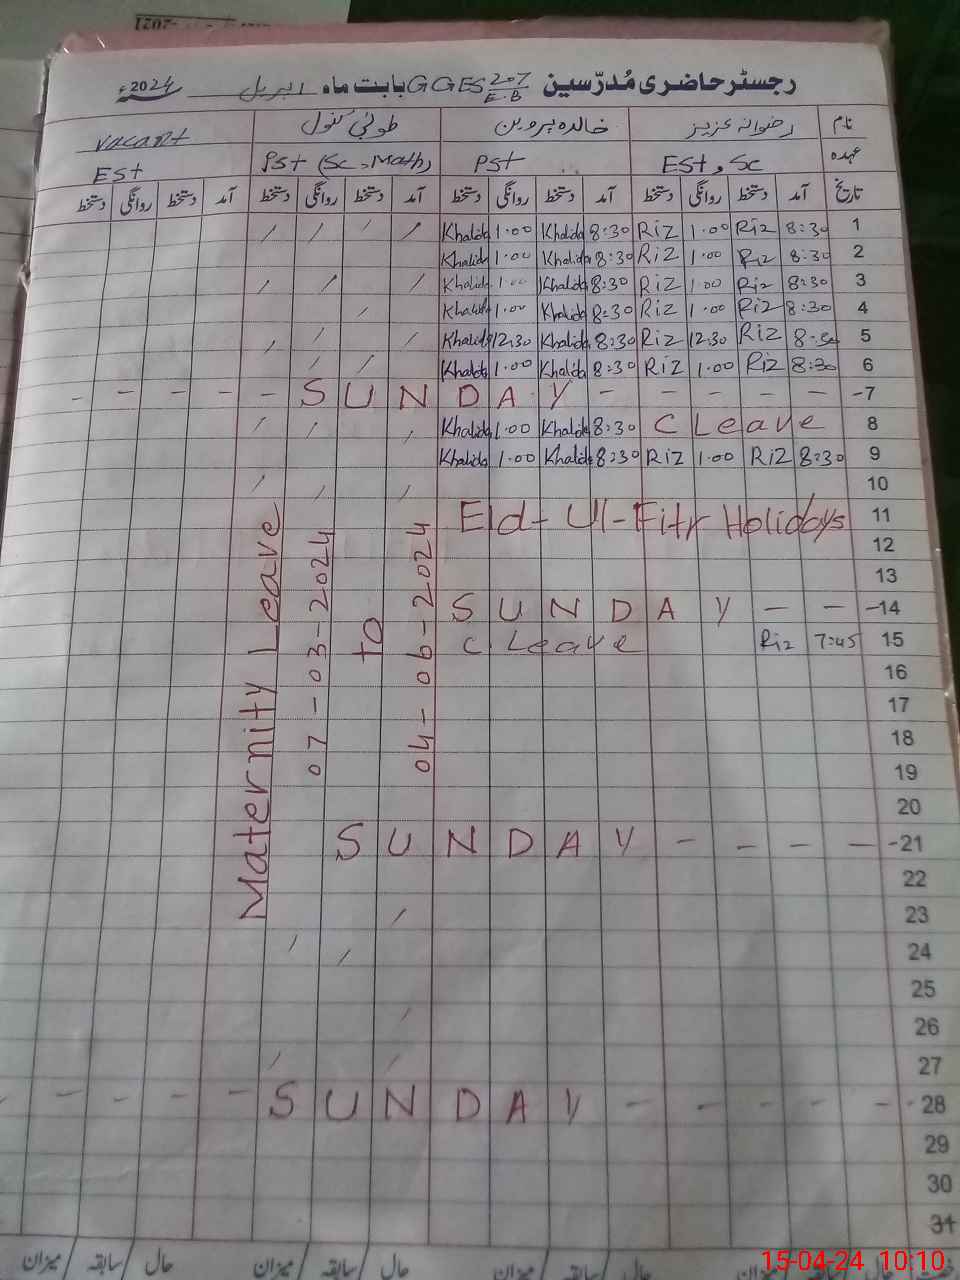 رجسٹر حاضری مُدرّسین GGES 207 E.B بابت ماہ اپریل 2024ء
نام رضوانہ عزیز خالدہ پروین طوبیٰ کنول vacant
عہدہ ESt, Sc PSt PSt (Sc, Math) ESt
تاریخ آمد دستخط روانگی دستخط آمد دستخط روانگی دستخط آمد دستخط روانگی دستخط آمد دستخط روانگی دستخط
1 8:30 Riz 1.00 Riz 8:30 Khalida 1.00 Khalida
2 8:30 Riz 1.00 Riz 8:30 Khalida 1.00 Khalida
3 8:30 Riz 1.00 Riz 8:30 Khalida 1.00 Khalida
4 8:30 Riz 1.00 Riz 8:30 Khalida 1.00 Khalida
5 8:30 Riz 12:30 Riz 8:30 Khalida 12:30 Khalida
6 8:30 Riz 1.00 Riz 8:30 Khalida 1.00 Khalida
- - - - - SUNDAY - - - - - -7
8 C Leave 8:30 Khalida 1.00 Khalida
9 8:30 Riz 1.00 Riz 8:30 Khalida 1.00 Khalida
10
Eid-Ul-Fitr Holidays 11
12
13
SUNDAY - - -14
C Leave Riz 7:45 15
16
17
18
19
20
SUNDAY - - - - -21
22
23
24
25
26
27
- - - - SUNDAY - - - - - -28
29
30
31
Maternity Leave
07-03-2024
to
04-06-2024
حال سابقہ میزان حال سابقہ میزان حال سابقہ میزان
15-04-24 10:10